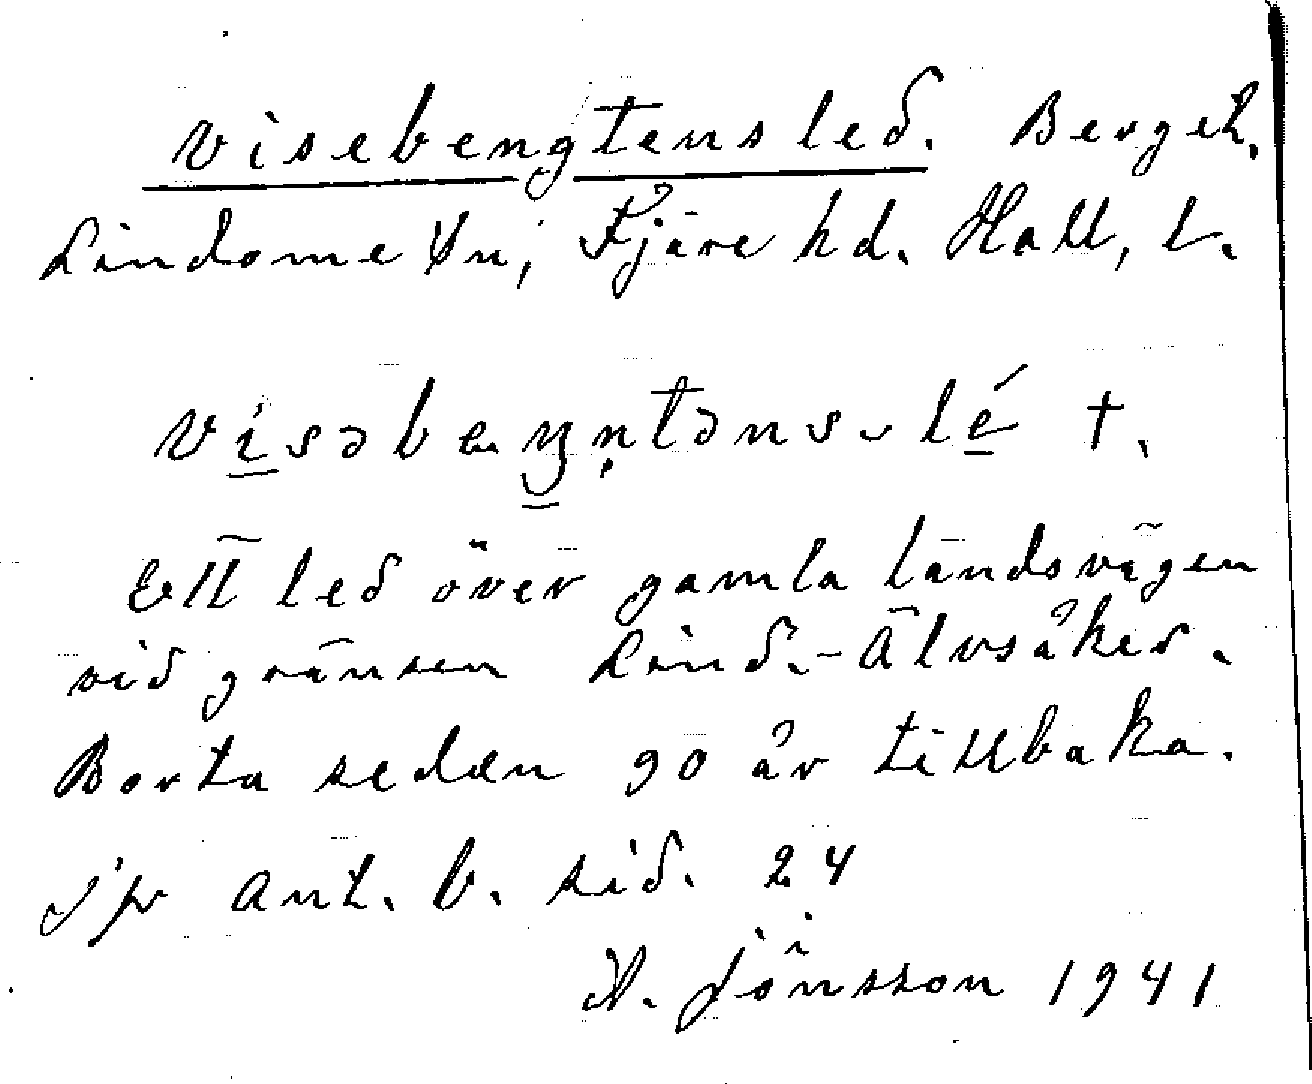 Visebengtens led. Berget.
Lindome sn, Fjäre hd. Hall, l.
lé †.
Ett led över gamla landsvägen
vid gränsen Lind.-Älvsåker.
Borta sedan 90 år tillbaka.
Jfr Ant. b. sid. 24
A. Jönsson 1941